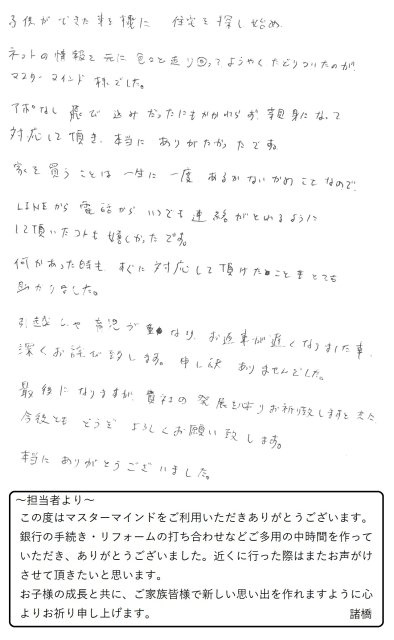 子供ができた事を機に 住宅を探し始め
ネットの情報を元に 色々と走り回ってようやくたどりついたのが、
マスターマインド様でした。
アポなし 飛び込みだったにもかかわらず、親身になって
対応して頂き、本当に ありがたかったです。
家を買うことは 一生に一度 あるかないかのことなので、
LINEから 電話から いつでも連絡がとれるように
して頂いたコトも嬉しかったです。
何かあった時も すぐに対応して頂けたこともとても
助かりました。
引越しや 育児が重なり、お返事が遅くなりました事、
深くお詫び致します。申し訳 ありませんでした。
最後になりますが、貴社の発展を心よりお祈り致しますと共に
今後とも どうぞ よろしくお願い致します。
本当に ありがとうございました。
～担当者より～
この度はマスターマインドをご利用いただきありがとうございます。
銀行の手続き・リフォームの打ち合わせなどご多用の中時間を作って
いただき、ありがとうございました。近くに行った際はまたお声がけ
させて頂きたいと思います。
お子様の成長と共に、ご家族皆様で新しい思い出を作れますように心
よりお祈り申し上げます。 諸橋